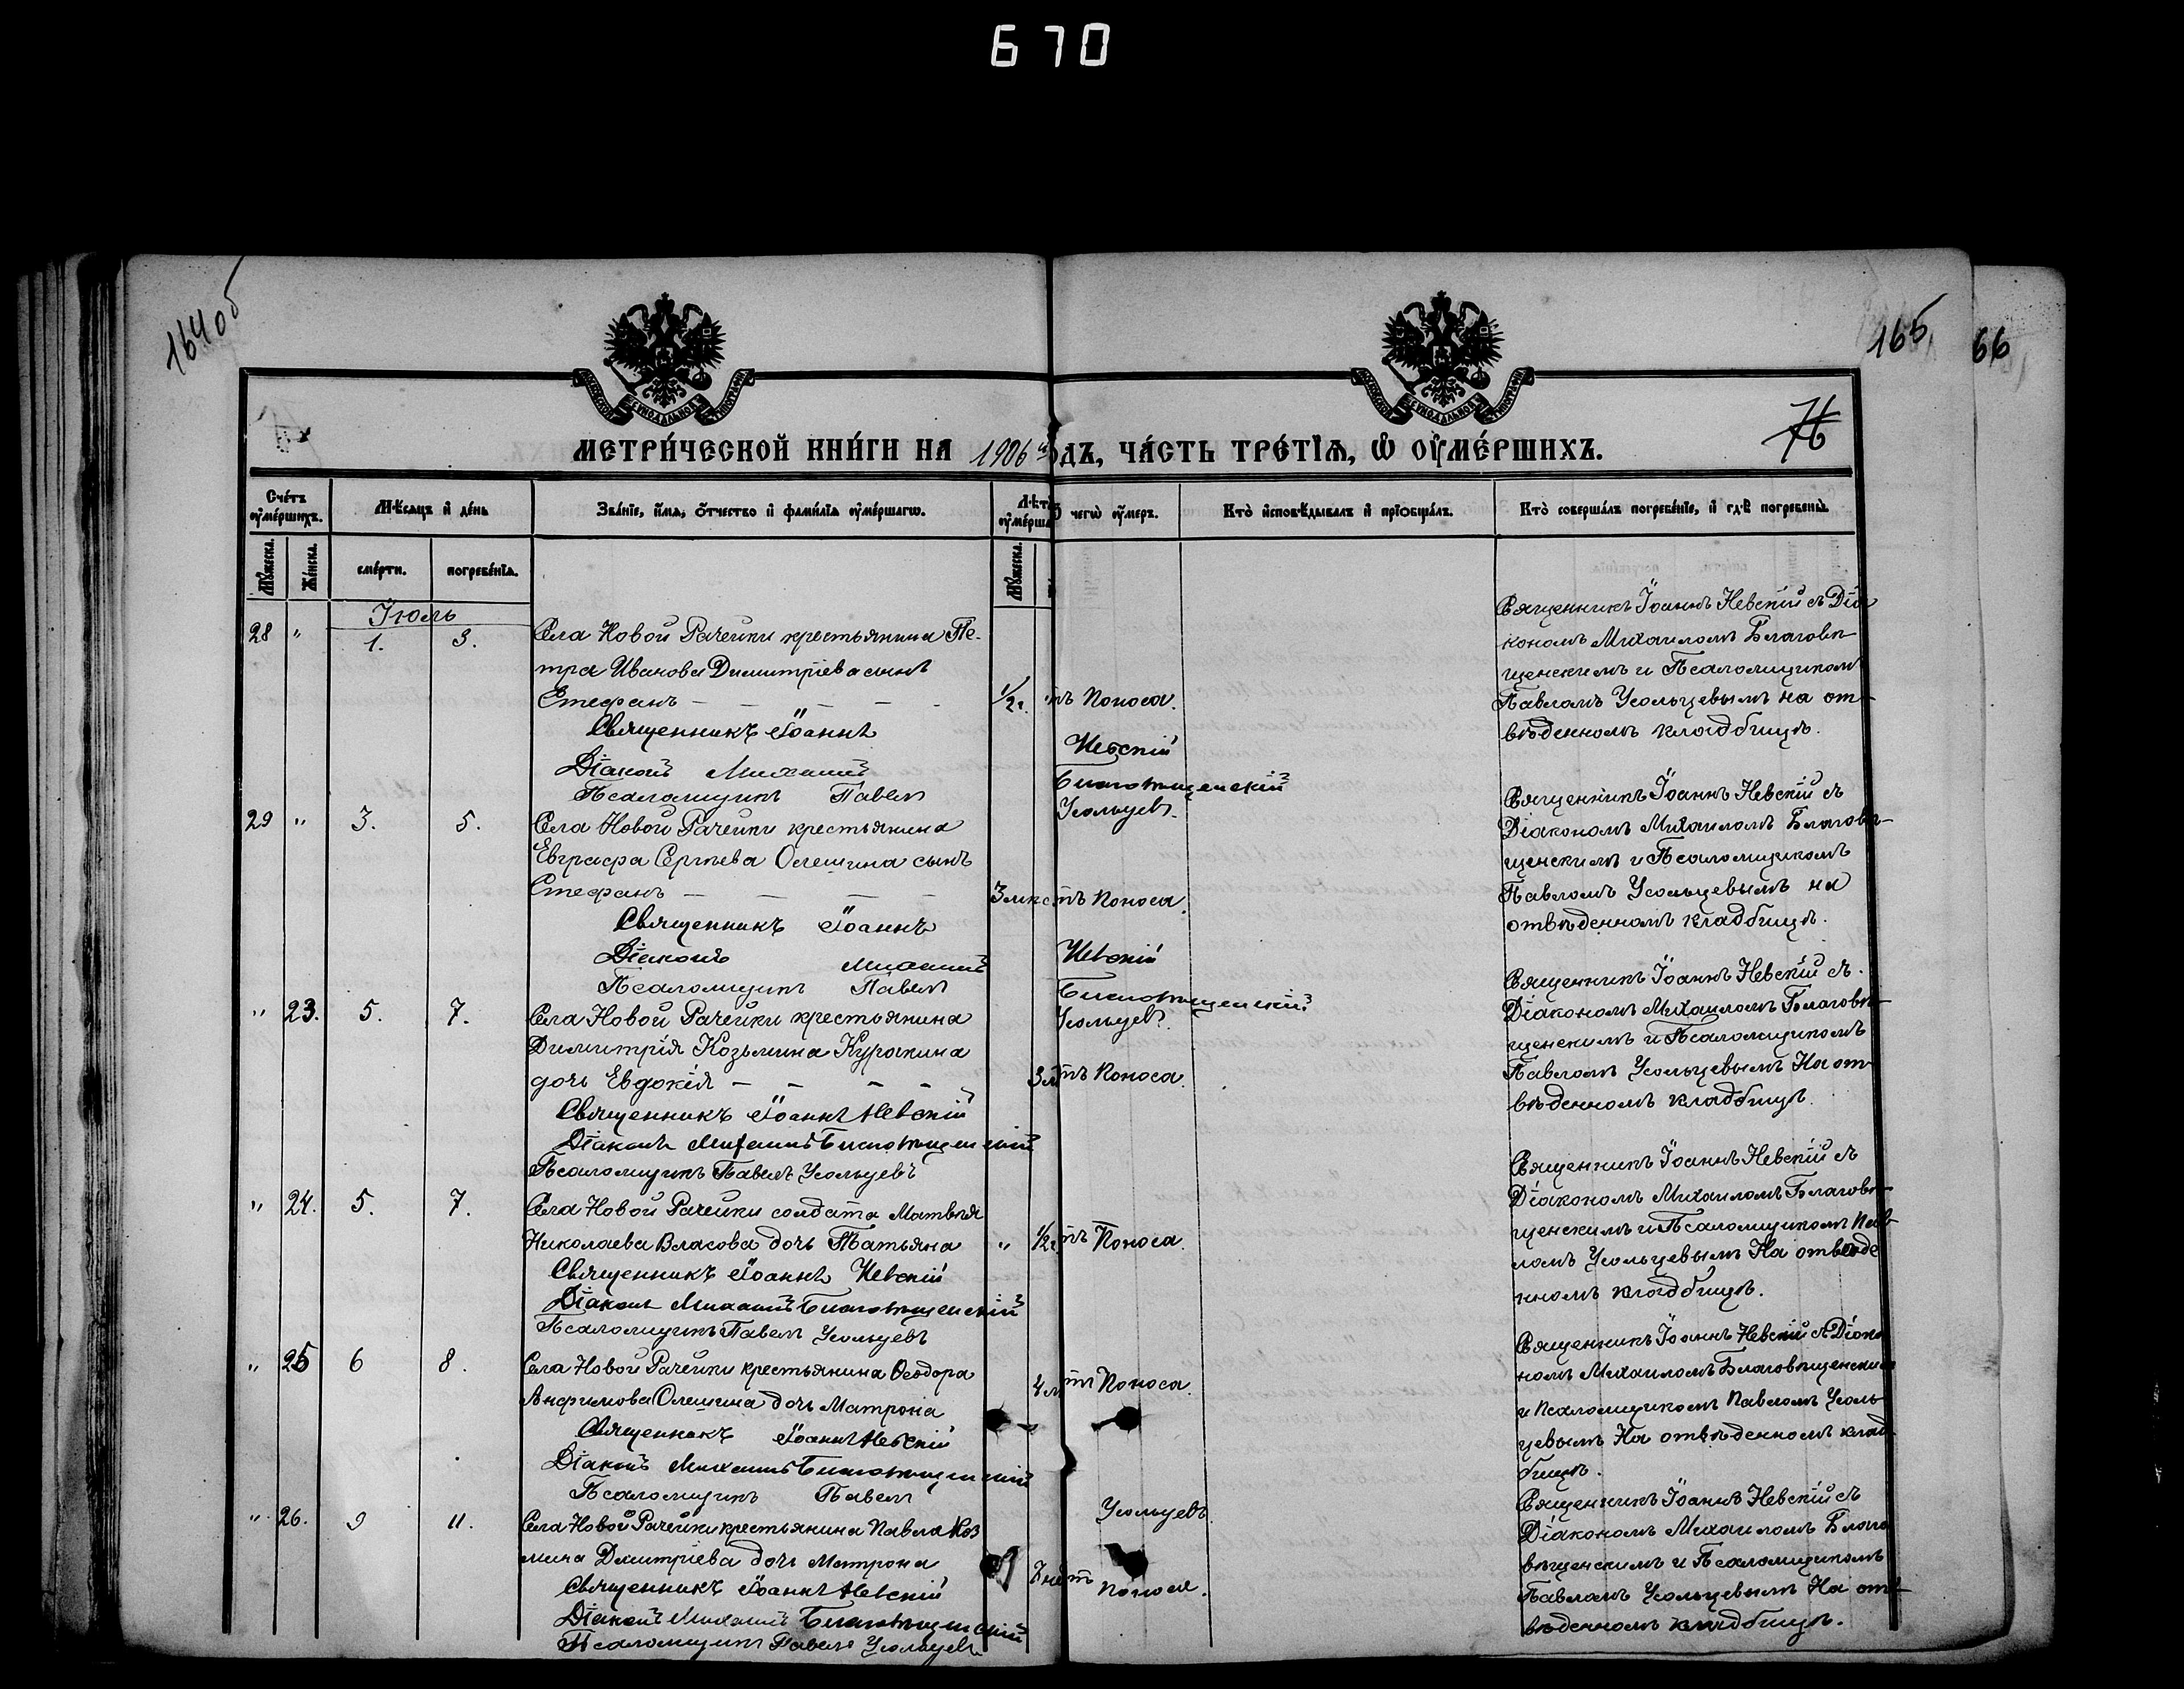 670
164об
165
66
76
МЕТРИ́ЧЕСКОЙ КНИ́ГИ НА 1906 й ГОДЪ, ЧА́СТЬ ТРЕ́ТIѦ, Ѡ ОУМЕ́РШИХЪ.
Сче́тъ оуме́ршихъ.
Мѣ́сяцъ и де́нь
Зва́нїе, и́мя, о́тчество и фами́лїя оуме́ршагѡ.
Лѣт оуме́рша
чегѡ̀ оу́меръ.
Кто̀ исповѣ́дывалъ и прїобща́лъ.
Кто̀ соверша́лъ погребе́нїе, и гдѣ̀ погребены̀.
Мꙋ́жеска.
Же́нска.
сме́рти.
погребе́нїя.
Мꙋ́жеска.
Іюль
28 " 1. 3.
Села Новой Рачейки крестьянина Пе-
тра Иванова Димитріева сынъ
Стефанъ - - - - - 1/2г. тъ Поноса.
Священникъ Іоаннъ Невскій
Діаконъ Михаилъ Благовѣщенскій
Псаломщикъ Павелъ Усольцевъ.
Священникъ Іоаннъ Невскій съ Діа
кономъ Михаиломъ Благовѣ-
щенскимъ и Псаломщикомъ
Павломъ Усольцевымъ на от-
вѣденномъ кладбищѣ.
29 " 3. 5.
Села Новой Рачейки крестьянина
Евграфа Сергѣева Олешина сынъ
Стефанъ - - - - 3 мѣс. тъ Поноса.
Священникъ Іоаннъ Невскій
Діаконъ Михаилъ Благовѣщенскій
Псаломщикъ Павелъ Усольцевъ.
Священникъ Іоаннъ Невскій съ
Діакономъ Михаиломъ Благовѣ-
щенскимъ и Псаломщикомъ
Павломъ Усольцевымъ на
отвѣденномъ кладбищѣ.
" 23. 5. 7.
Села Новой Рачейки крестьянина
Димитрія Козьмина Куракина
дочь Евдокія - - - - 3 м тъ Поноса.
Священникъ Іоаннъ Невскій
Діаконъ Михаилъ Благовѣщенскій
Псаломщикъ Павелъ Усольцевъ
Священникъ Іоаннъ Невскій съ
Діакономъ Михаиломъ Благовѣ-
щенскимъ и Псаломщикомъ
Павломъ Усольцевымъ На от-
вѣденномъ кладбищѣ.
" 24. 5. 7.
Села Новой Рачейки солдата Матвѣя
Николаева Власова дочь Татьяна " 1/2г. тъ Поноса.
Священникъ Іоаннъ Невскій
Діаконъ Михаилъ Благовѣщенскій
Псаломщикъ Павелъ Усольцевъ
Священникъ Іоаннъ Невскій съ
Діакономъ Михаиломъ Благовѣ-
щенскимъ и Псаломщикомъ Пав-
ломъ Усольцевымъ На отвѣде
нномъ кладбищѣ.
" 25 6 8.
Села Новой Рачейки крестьянина Ѳеодора
Анфимова Олешина дочь Матрона 4 м тъ Поноса.
Священникъ Іоаннъ Невскій
Діаконъ Михаилъ Благовѣщенскій
Псаломщикъ Павелъ Усольцевъ.
Священникъ Іоаннъ Невскій съ Діако
номъ Михаиломъ Благовѣщенским
и Псаломщикомъ Павломъ Усоль
цевымъ На отвѣденномъ клад-
бищѣ.
" 26. 9 11.
Села Новой Рачейки крестьянина Павла Коз
мина Дмитріева дочь Матрона тъ Поноса.
Священникъ Іоаннъ Невскій
Діаконъ Михаилъ Благовѣщенскій
Псаломщикъ Павелъ Усольцевъ
Священникъ Іоаннъ Невскій съ
Діакономъ Михаиломъ Благо
вѣщенскимъ и Псаломщикомъ
Павломъ Усольцевымъ На от-
вѣденномъ кладбищѣ.